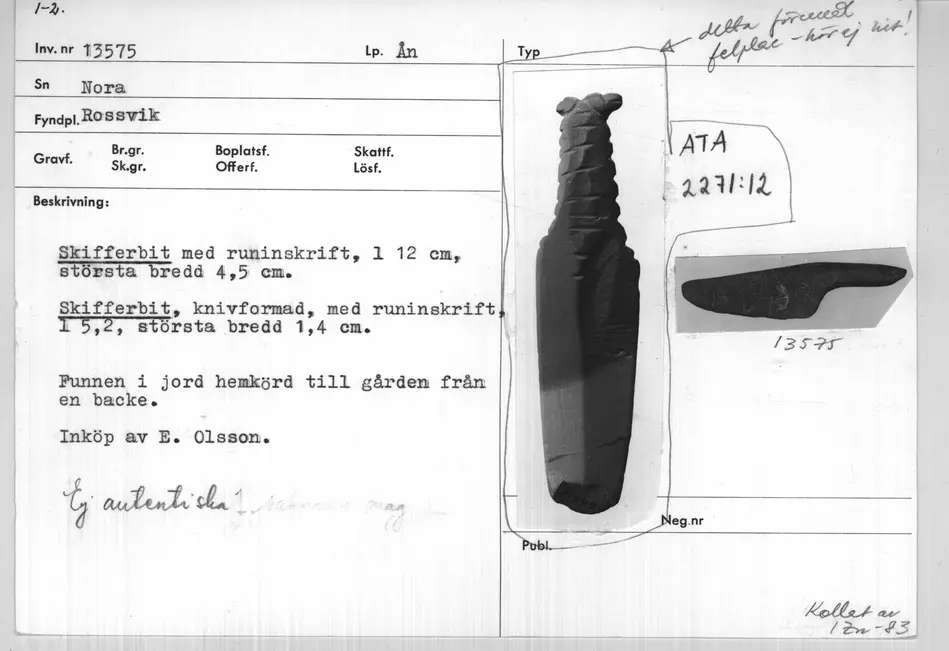 1-2.
Inv. nr 13575
Lp. Ån
Typ
detta föremål
felplac - hör ej hit!
Sn Nora
Fyndpl. Rossvik
Gravf.
Br.gr.
Sk.gr.
Boplatsf.
Offerf.
Skattf.
Lösf.
ATA
2271:12
Beskrivning:
Skifferbit med runinskrift, l 12 cm,
största bredd 4,5 cm.
Skifferbit, knivformad, med runinskrift,
l 5,2, största bredd 1,4 cm.
13575
Funnen i jord hemkörd till gården från
en backe.
Inköp av E. Olsson.
Ej autentiska!
Neg.nr
Publ.
Kollat av